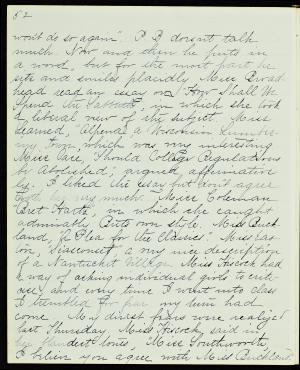 52
won't do so again". P. B. doesn't talk
much. Now and then he puts in
a word, but for the most part he
sits and smiles placidly. Miss Broad-
head read an essay on "How Shall We
Spend the Sabbath", in which she took
a liberal view of the subject. Miss
Learned, "Alpena, a Wisconsin Lumber-
ing Town", which was very interesting
Miss Care, "Should College Regulations
be Abolished", argued affirmative
ly. I liked the essay but don't agree
very much. Miss Coleman
Bret Harte, in which she caught
admirably Bret's own style. Miss Buck
land, "A Plea for the Classics". Miss Eas-
ton, "Siasconset" a very nice description
of a Nantucket Village. Miss Hiscock has
a way of asking individual girls to crit-
icise, and every time I went into class
I trembled for fear my turn had
come. My direst fears were realized
last Thursday. Miss Hiscock said in
her tones, "Miss Southworth,
I believe you agree with Miss Buckland.